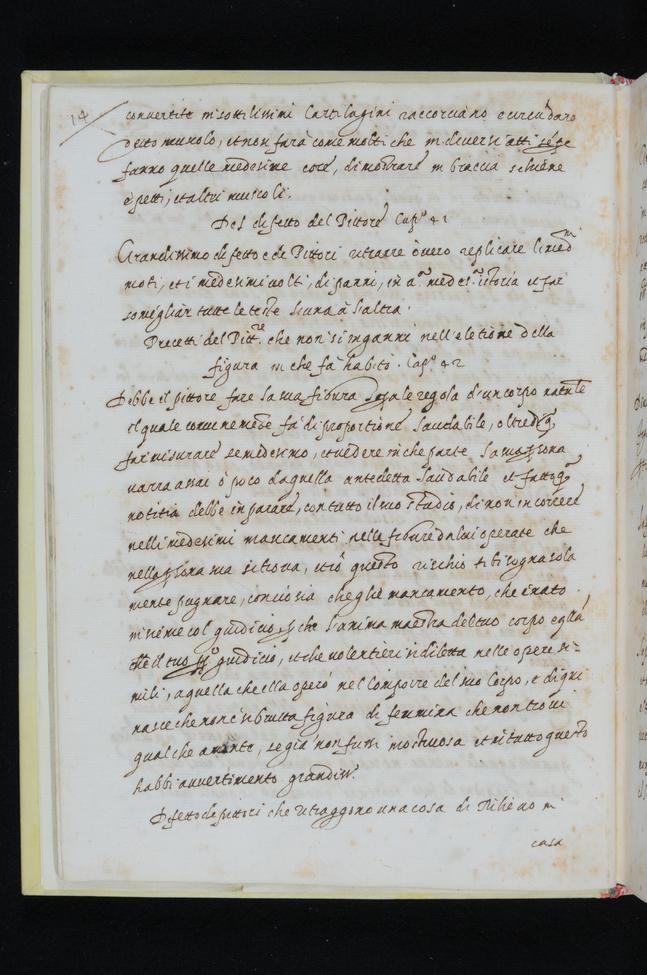 14
convertite in sottilissimi Cartilagini raccorciano e circu~daro
detto muscolo, et non farà come molti che in diversi atti sempre
fanno quelle medesime cose, dimostrare in braccia schiene
e petti, et altri muscoli.
Del difetto del Pittore Cap.º 41
Grandissimo difetto è de Pittori ritrarre òvero replicare li med.mi
moti, et i medesimi volti, di panni, in a.ª medes.ª istoria et far
somigliar tutte le teste l'una à l'altra.
Precetti del Pitt.re che non s'inganni nell'eletione della
figura in che fà habito. Cap.º 42
Debbe il pittore fare la sua figura sopra le regola d'un corpo nat.le
il quale comunemente sia di proportione laudabile, oltre di q.º
far misurare se medesimo, et vedere in che parte la sua persona
varia assai ò poco da quella antedetta laudabile et fatto q.ª
notitia debbe in parare, con tutto il suo studio, di non incorrere
nelli medesimi mancamenti nella figure da lui operate che
nella persona sua si trova, et cõ questo vichio ti bisogna sola
mente pugnare, conciosia che gl'è mancamento, che è nato
insieme col giudicio, perche l'anima maestra del tuo corpo è q̃lla
che il tuo pp.º giudicio, et che volentieri si diletta nelle opere si=
mili, a quella che ella operò nel Comporre del suo Corpo, e di qui
nasce che non è si brutta figura di femmina che non trovi
qualche amante, se già non fusse mostruosa et ri tutto questo
habbi avvertimento grandiss.º
Difetto de pittori che ritraggono una cosa di Rilievo in
casa